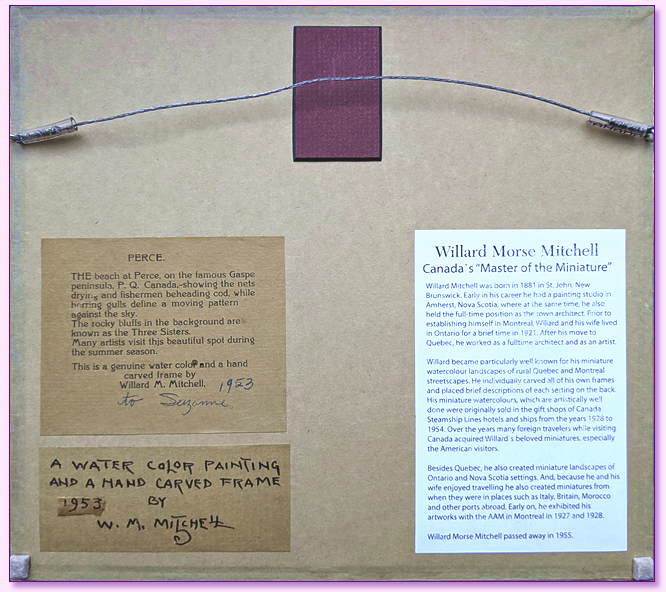 PERCE.
THE beach at Perce, on the famous Gaspe
peninsula, P. Q. Canada,-showing the nets
drying and fishermen beheading cod, while
herring gulls define a moving pattern
against the sky.
The rocky bluffs in the background are
known as the Three Sisters.
Many artists visit this beautiful spot during
the summer season.
This is a genuine water color and a hand
carved frame by
Willard M. Mitchell, 1953
to Suzanne.
A WATER COLOR PAINTING
AND A HAND CARVED FRAME
1953 BY
W. M. MITCHELL
Willard Morse Mitchell
Canada's "Master of the Miniature"
Willard Mitchell was born in 1881 in St. John, New
Brunswick. Early in his career he had a painting studio in
Amherst, Nova Scotia, where at the same time, he also
held the full-time position as the town architect. Prior to
establishing himself in Montreal, Willard and his wife lived
in Ontario for a brief time in 1921. After his move to
Quebec, he worked as a fulltime architect and as an artist.
Willard became particularly well known for his miniature
watercolour landscapes of rural Quebec and Montreal
streetscapes. He individually carved all of his own frames
and placed brief descriptions of each setting on the back.
His miniature watercolours, which are artistically well
done were originally sold in the gift shops of Canada
Steamship Lines hotels and ships from the years 1928 to
1954. Over the years many foreign travelers while visiting
Canada acquired Willard's beloved miniatures, especially
the American visitors.
Besides Quebec, he also created miniature landscapes of
Ontario and Nova Scotia settings. And, because he and his
wife enjoyed travelling he also created miniatures from
when they were in places such as Italy, Britain, Morocco
and other ports abroad. Early on, he exhibited his
artworks with the AAM in Montreal in 1927 and 1928.
Willard Morse Mitchell passed away in 1955.